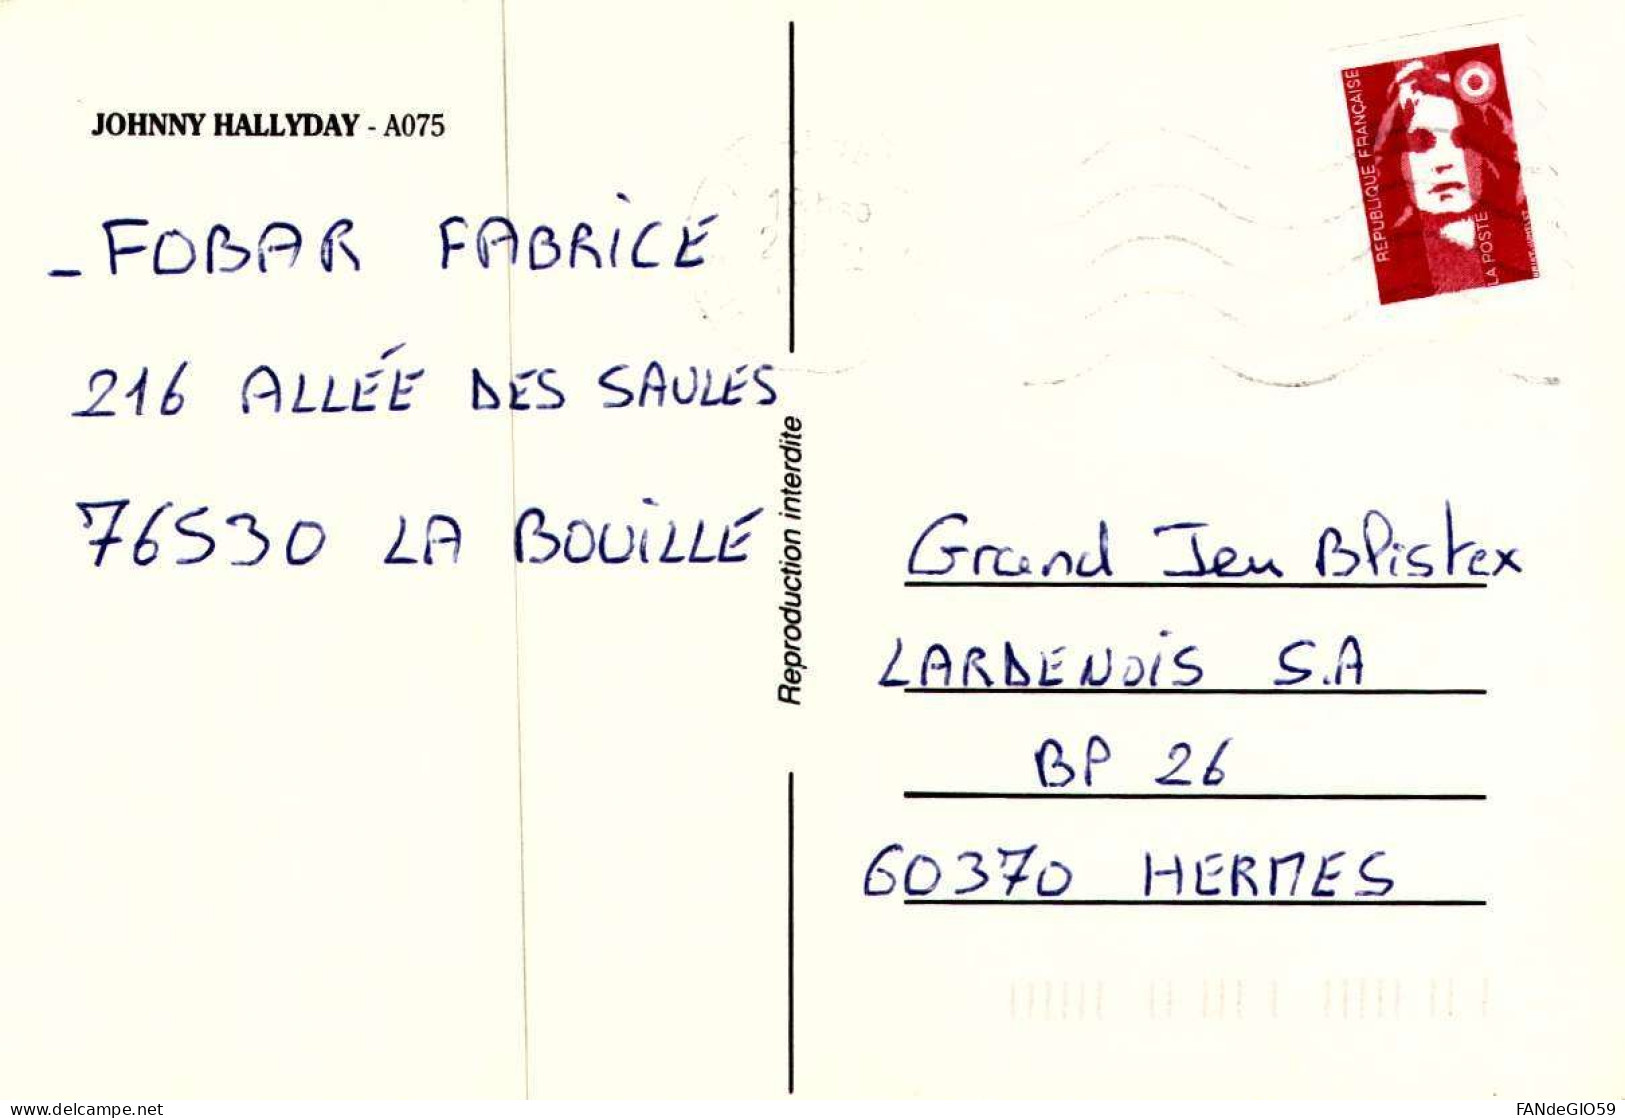 JOHNNY HALLYDAY - A075
- FOBAR FABRICE
216 ALLÉE DES SAULES
76530 LA BOUILLE
Reproduction interdite
REPUBLIQUE FRANÇAISE
LA POSTE
Grand Jeu BPistex
LARDENOIS S.A
BP 26
60370 HERMES
delcampe.net
FANdeGIO59